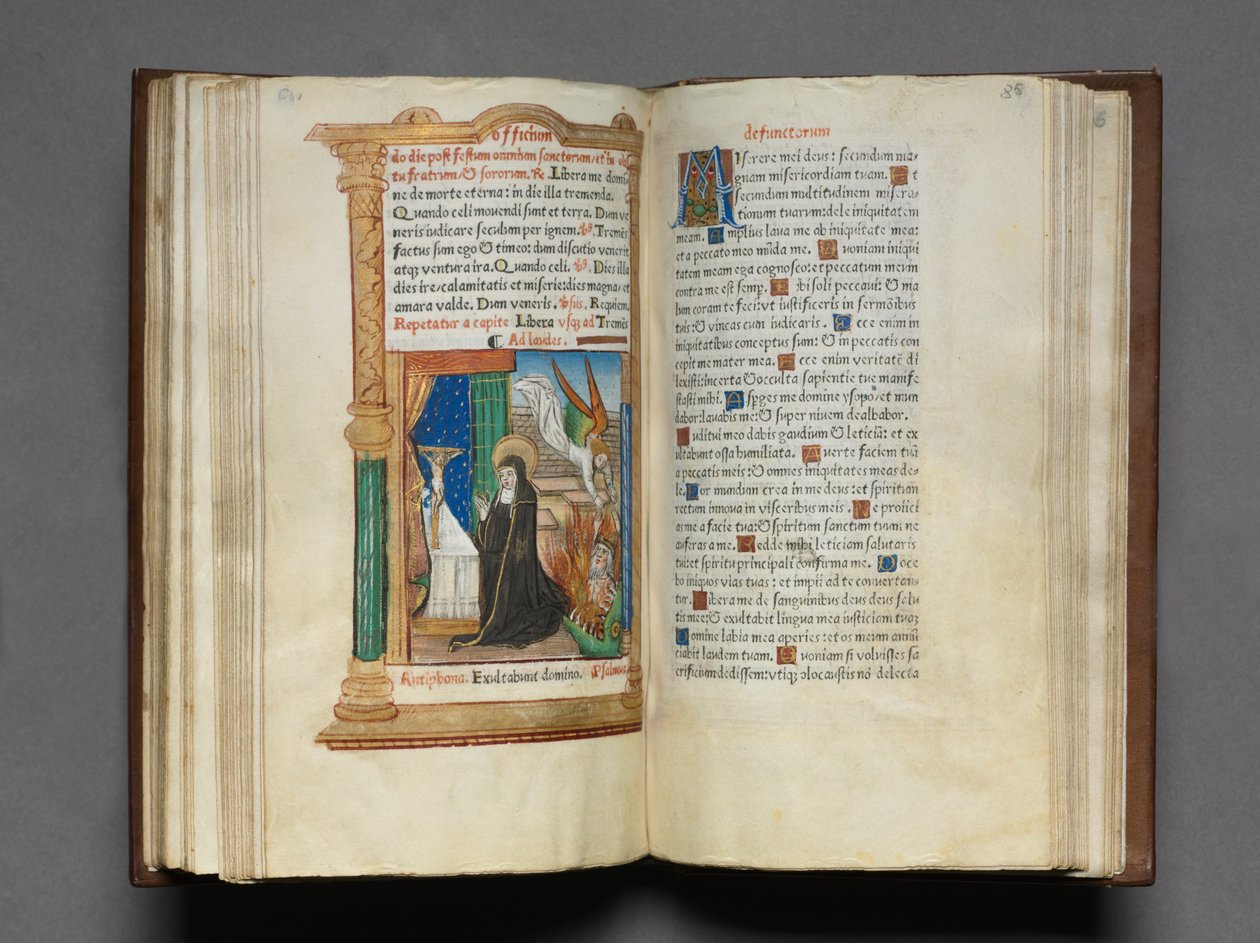 officium
do die post festum omnium sanctorum/et in ob
itu fratrum/& sororum. &c. Libera me domi-
ne de morte eterna: in die illa tremenda.
Quando celi mouendi sunt et terra. Dum ve
neris iudicare seculum per ignem. Tremēs
factus sum ego & timeo: dum discutio venerit
atq; ventura ira. Quando celi. Dies illa
dies ire/calamitatis et miserie: dies magna/et
amara valde. Dum veneris. Requiem.
Repetatur a capite Libera vsq; ad Tremēs
Ad laudes.
Antiphona. Exultabunt domino. Psalmus.
85
defunctorum
Miserere mei deus: secundum ma-
gnam misericordiam tuam. Et
secundum multitudinem misera-
tionum tuarum: dele iniquitatem
meam. Amplius laua me ab iniquitate mea:
et a peccato meo mūda me. Quoniam iniqui
tatem meam ego cognosco: et peccatum meum
contra me est semp. Tibi soli peccaui: & ma
lum coram te feci: vt iustificeris in sermōibus
tuis: & vincas cum iudicaris. Ecce enim in
iniquitatibus conceptus sum: & in peccatis con
cepit me mater mea. Ecce enim veritatē di
lexisti: incerta & occulta sapientie tue manife
stasti mihi. Asperges me domine ysopo/et mun
dabor: lauabis me: & super niuem dealbabor.
Auditui meo dabis gaudium & leticiā: et ex
ultabunt ossa humiliata. Auerte faciem tuā
a peccatis meis: & omnes iniquitates meas de-
le. Cor mundum crea in me deus: et spiritum
rectum innoua in visceribus meis. Ne proiici
as me a facie tua: & spiritum sanctum tuum ne
auferas a me. Redde mihi leticiam salutaris
tui: et spiritu principali confirma me. Doce
bo iniquos vias tuas: et impii ad te conuerten-
tur. Libera me de sanguinibus deus deus salu
tis mee: & exultabit lingua mea iusticiam tuaz
Domine labia mea aperies: et os meum annū
ciabit laudem tuam. Quoniam si voluisses sa
crificium dedissem: vtiq; olocaustis nō delecta
6